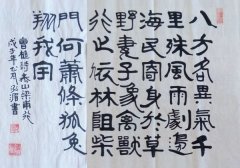 八方各異氣千
里殊風雨劇邊
海民寄身於草
野妻子象禽獸
行止依林阻柴
門何蕭條狐兔
翔我宇
曹植詩泰山梁甫行
戊子年月書